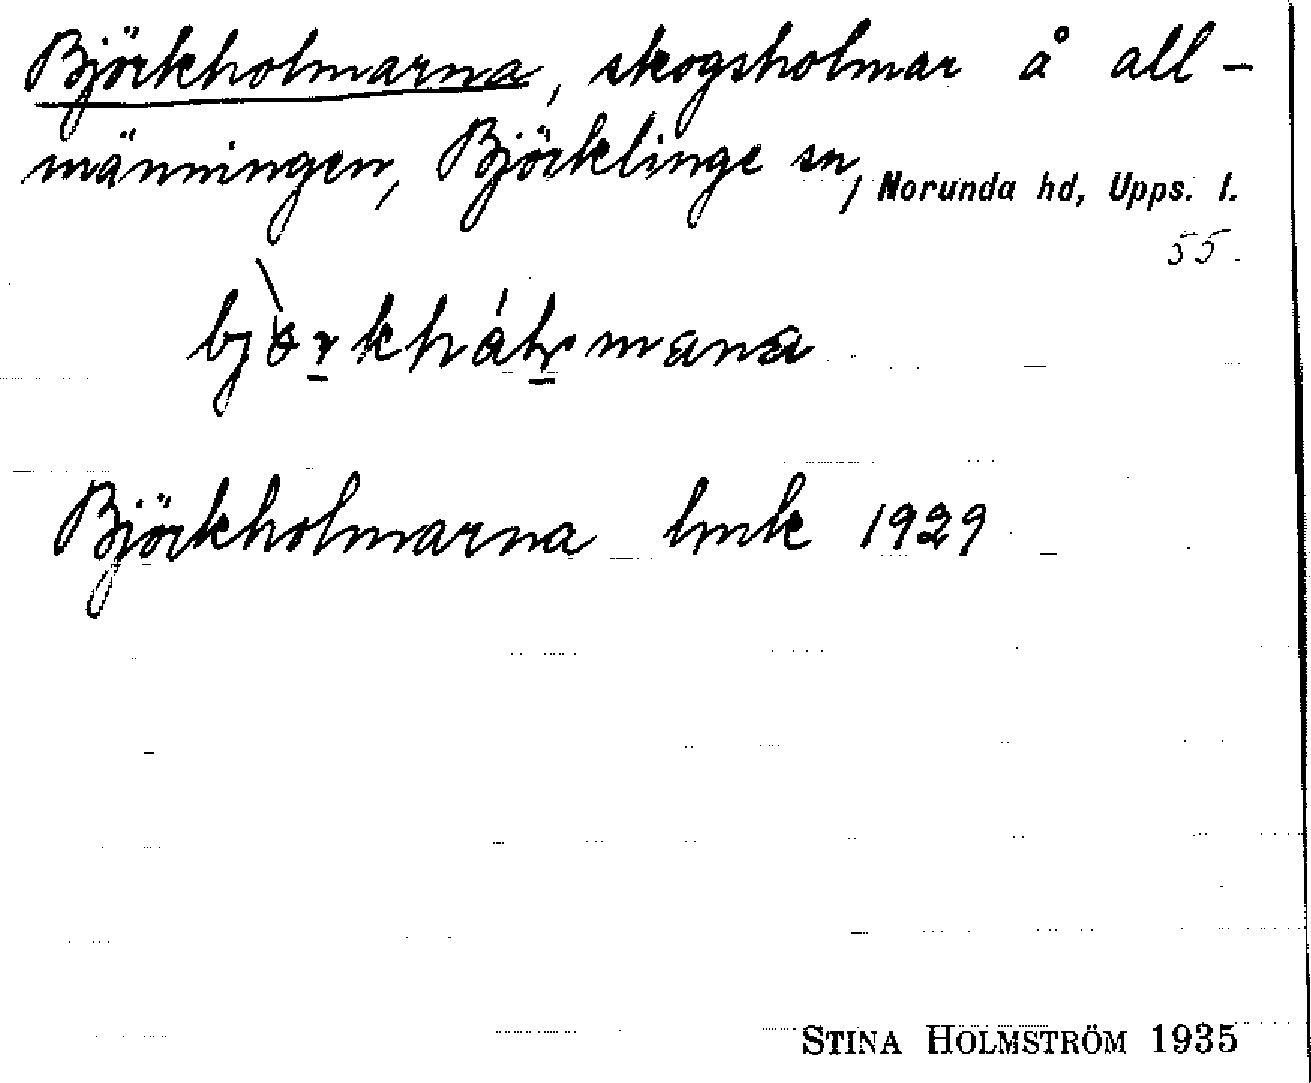 Björkholmarna, skogsholmar å all-
männingen, Björklinge sn, Norunda hd, Upps. l.
55.
Björkholmarna hmk 1929
STINA HOLMSTRÖM 1935